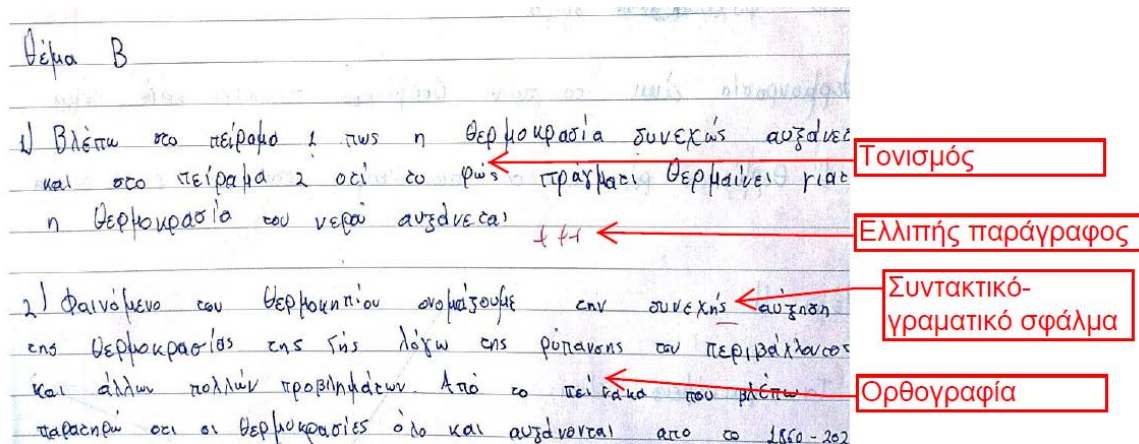 Θέμα Β
1) Βλέπω στο πείραμα 1 πως η θερμοκρασία συνεχώς αυξάνετ
και στο πείραμα 2 οτι το φώς πράγματι θερμαίνει γιατ
η θερμοκρασία του νερού αυξάνεται
+++
2) Φαινόμενο του θερμοκηπίου ονομάζουμε την συνεχής αύξηση
της θερμοκρασίας της Γής λόγω της ρύπανσης του περιβάλλοντος
και άλλων πολλών προβλημάτων. Από το πείνακα που βλέπω
παρατηρώ οτι οι θερμοκρασίες όλο και αυξάνονται απο το 1860-202
Τονισμός
Ελλιπής παράγραφος
Συντακτικό-
γραματικό σφάλμα
Ορθογραφία